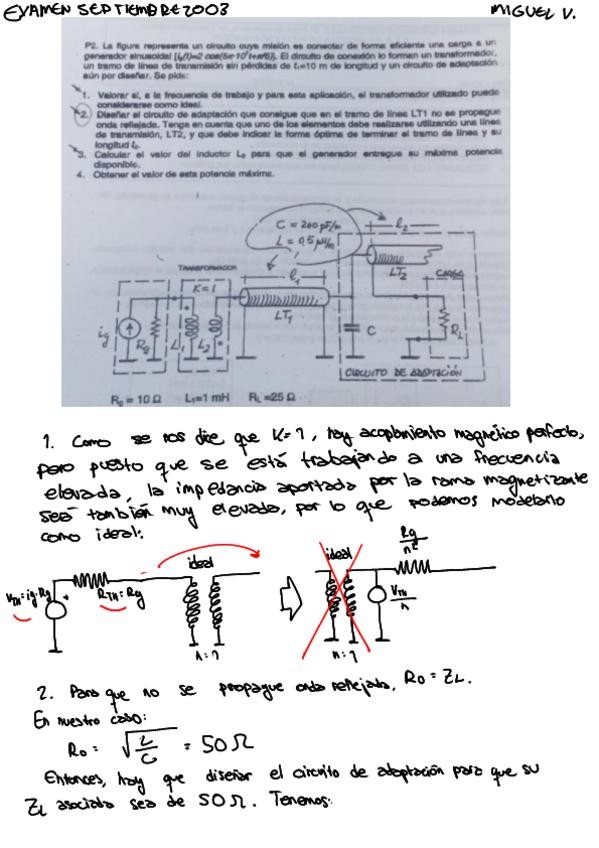 EXAMEN SEPTIEMBRE 2003
MIGUEL V.
P2. La figura representa un circuito cuya misión es conectar de forma eficiente una carga a un
generador sinusoidal
El circuito de conexión lo forman un transformador,
un tramo de línea de transmisión sin pérdidas de l₁=10 m de longitud y un circuito de adaptación
aún por diseñar. Se pide:
1. Valorar si, a la frecuencia de trabajo y para esta aplicación, el transformador utilizado puede
considerarse como ideal.
2. Diseñar el circuito de adaptación que consigue que en el tramo de línea LT1 no se propague
onda reflejada. Tenga en cuenta que uno de los elementos debe realizarse utilizando una línea
de transmisión, LT2, y que debe indicar la forma óptima de terminar el tramo de línea y su
longitud l₂.
3. Calcular el valor del inductor L₂ para que el generador entregue su máxima potencia
disponible.
4. Obtener el valor de esta potencia máxima.
C = 200 pF/m
L = 0,5 μH/m
l₂
TRANSFORMADOR
K=1
l₁
LT₂
CARGA
LT₁
ig
Rg
L₁
L₂
C
RL
CIRCUITO DE ADAPTACIÓN
Rg = 10 Ω L₁=1 mH RL=25 Ω
1. Como se nos dice que K=1, hay acoplamiento magnético perfecto,
pero puesto que se está trabajando a una frecuencia
elevada, la impedancia aportada por la rama magnetizante
será también muy elevada, por lo que podemos modelarlo
como ideal:
VTH=ig·Rg
RTH=Rg
ideal
n:1
ideal
n:1
Rg/n²
VTH/n
2. Para que no se propague onda reflejada, R₀ = ZL.
En nuestro caso:
R₀ = √(L/C) = 50 Ω
Entonces, hay que diseñar el circuito de adaptación para que su
ZL asociada sea de 50 Ω. Tenemos: